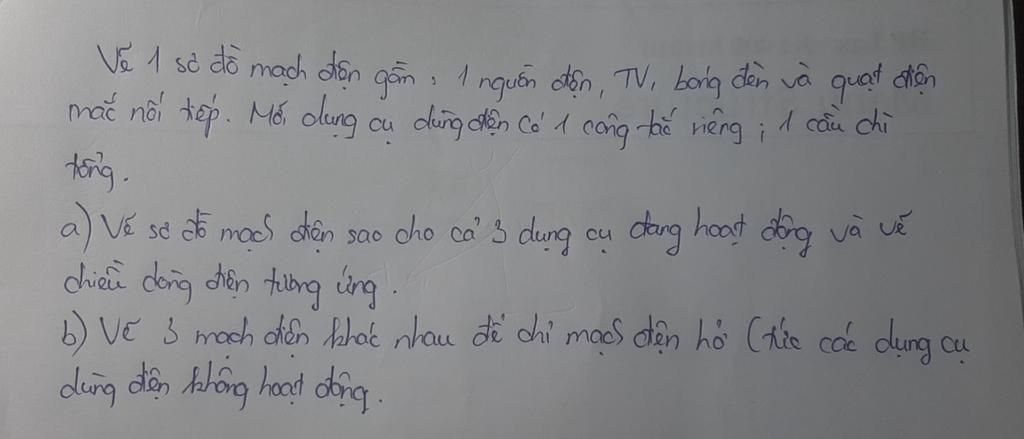 Vẽ 1 sơ đồ mạch điện gồm : 1 nguồn điện, TV, bóng đèn và quạt điện
mắc nối tiếp. Mỗi dụng cụ dùng điện có 1 công tắc riêng ; 1 cầu chì
tổng.
a) Vẽ sơ đồ mạch điện sao cho cả 3 dụng cụ đang hoạt động và vẽ
chiều dòng điện tương ứng.
b) Vẽ 3 mạch điện khác nhau để chỉ mạch điện hở (tức các dụng cụ
dùng điện không hoạt động.